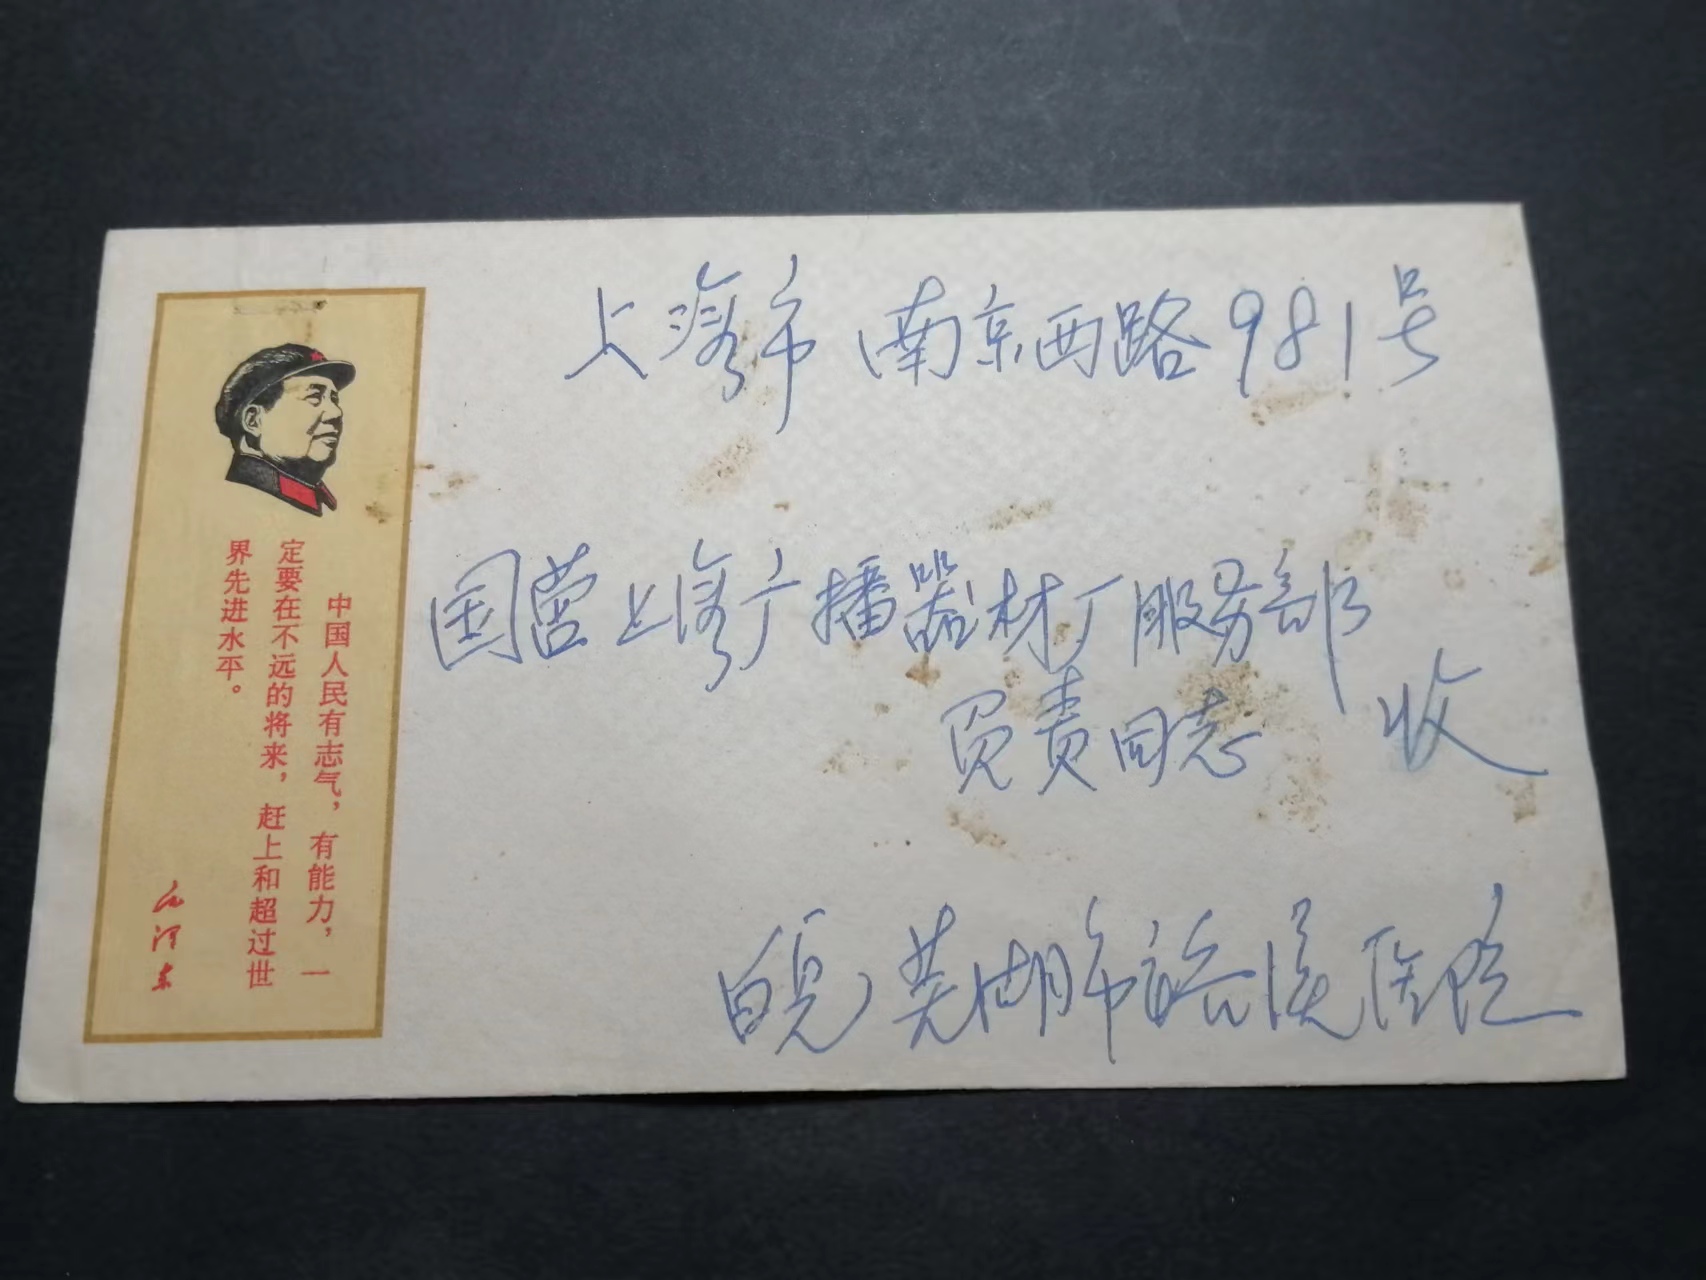 上海市南京西路981号
国营上海广播器材厂服务部
负责同志 收
皖芜湖市裕溪医院
中国人民有志气，有能力，一
定要在不远的将来，赶上和超过世
界先进水平。
毛泽东